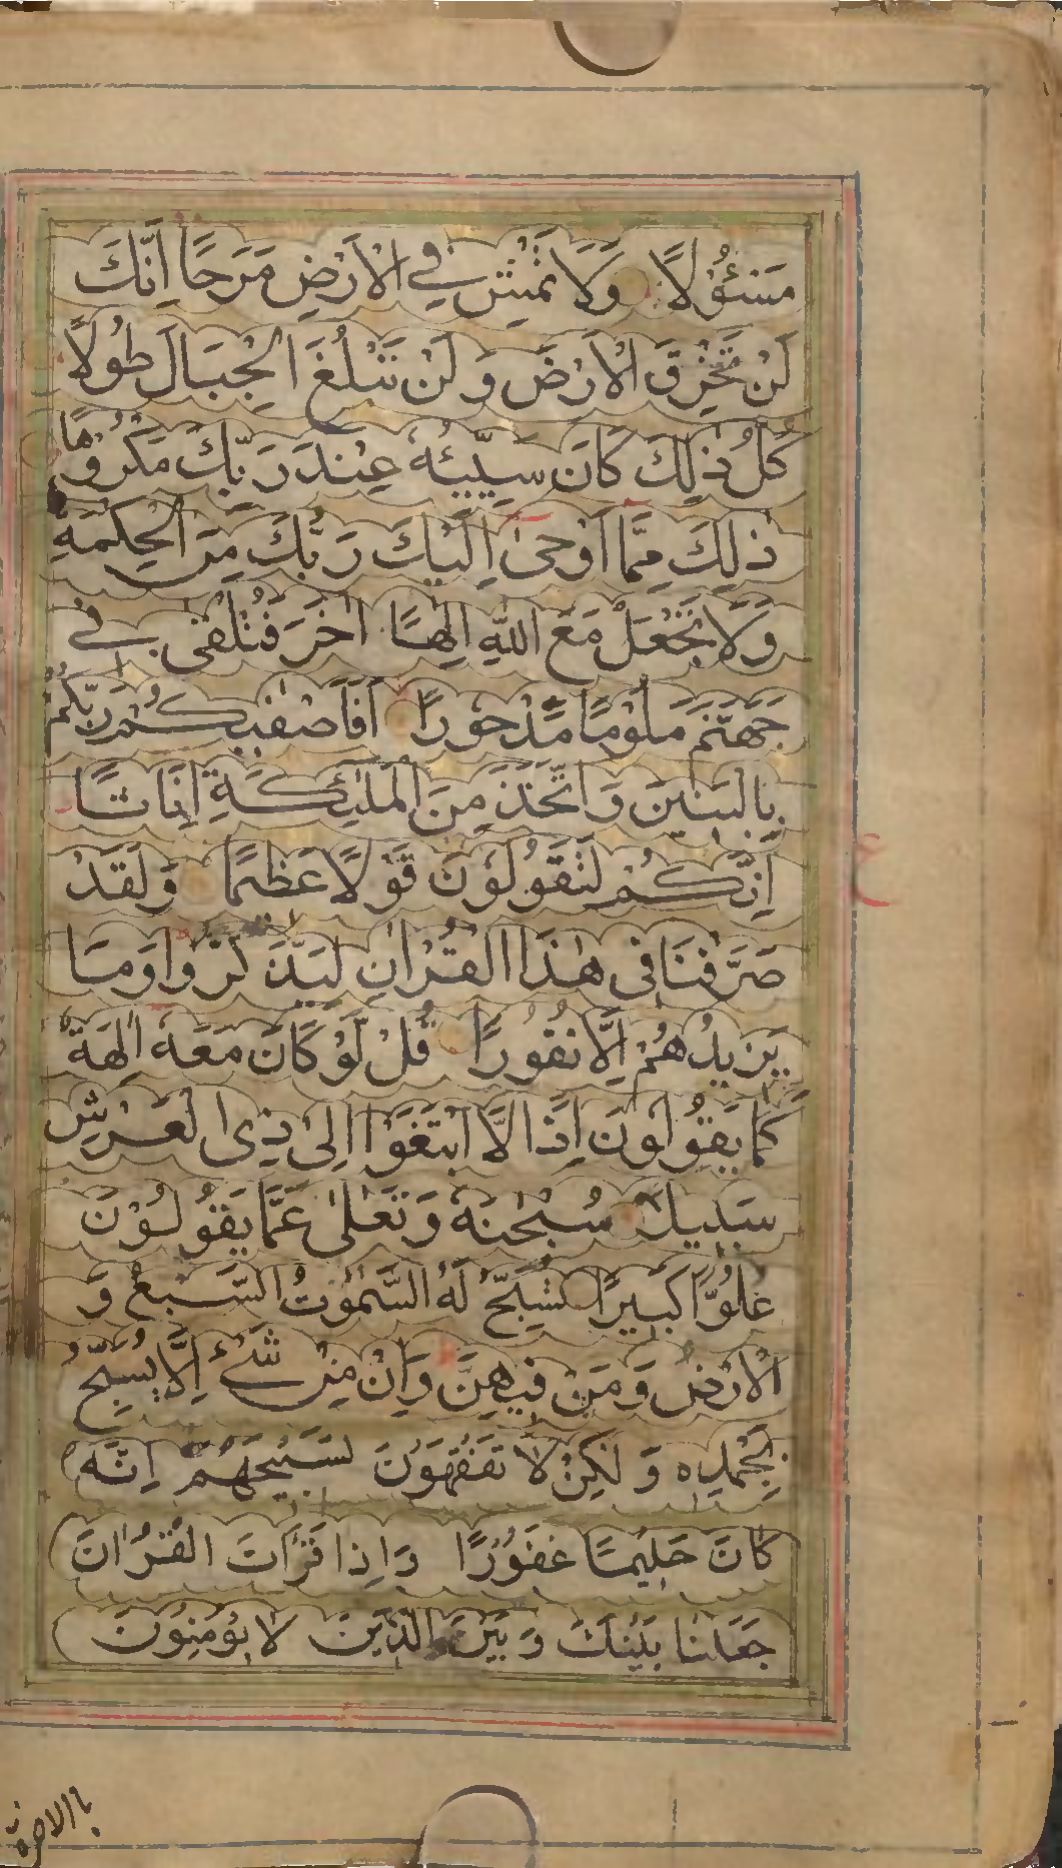 مَسْئُوْلًا وَلَا تَمْشِ فِي الْاَرْضِ مَرَحًا اِنَّكَ
لَنْ تَخْرِقَ الْاَرْضَ وَلَنْ تَبْلُغَ الْجِبَالَ طُوْلًا
كُلُّ ذٰلِكَ كَانَ سَيِّئُهٗ عِنْدَ رَبِّكَ مَكْرُوْهًا
ذٰلِكَ مِمَّا اَوْحٰى اِلَيْكَ رَبُّكَ مِنَ الْحِكْمَةِ
وَلَا تَجْعَلْ مَعَ اللّٰهِ اِلٰهًا اٰخَرَ فَتُلْقٰى فِيْ
جَهَنَّمَ مَلُوْمًا مَّدْحُوْرًا اَفَاَصْفٰىكُمْ رَبُّكُمْ
بِالْبَنِيْنَ وَاتَّخَذَ مِنَ الْمَلٰٓئِكَةِ اِنَاثًا
اِنَّكُمْ لَتَقُوْلُوْنَ قَوْلًا عَظِيْمًا وَلَقَدْ
صَرَّفْنَا فِى هٰذَا الْقُرْاٰنِ لِيَذَّكَّرُوْا وَمَا
يَزِيْدُهُمْ اِلَّا نُفُوْرًا قُلْ لَّوْ كَانَ مَعَهٗ اٰلِهَةٌ
كَمَا يَقُوْلُوْنَ اِذًا لَّابْتَغَوْا اِلٰى ذِى الْعَرْشِ
سَبِيْلًا سُبْحٰنَهٗ وَتَعٰلٰى عَمَّا يَقُوْلُوْنَ
عُلُوًّا كَبِيْرًا تُسَبِّحُ لَهُ السَّمٰوٰتُ السَّبْعُ وَ
الْاَرْضُ وَمَنْ فِيْهِنَّ وَاِنْ مِّنْ شَيْءٍ اِلَّا يُسَبِّحُ
بِحَمْدِهٖ وَلٰكِنْ لَا تَفْقَهُوْنَ تَسْبِيْحَهُمْ اِنَّهٗ
كَانَ حَلِيْمًا غَفُوْرًا وَاِذَا قَرَاْتَ الْقُرْاٰنَ
جَعَلْنَا بَيْنَكَ وَبَيْنَ الَّذِيْنَ لَا يُؤْمِنُوْنَ
ع
باالاخرة